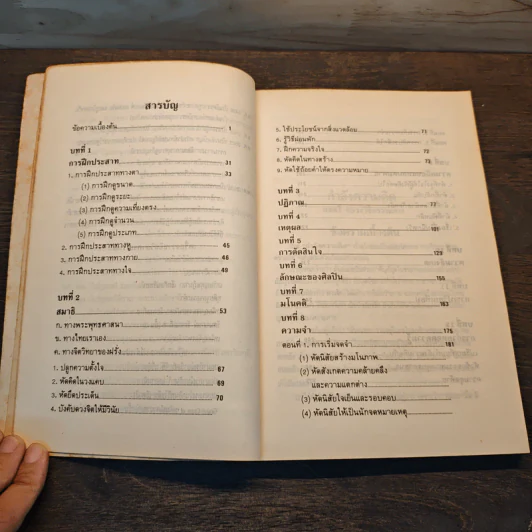 สารบัญ
ข้อความเบื้องต้น 1
บทที่ 1
การฝึกประสาท 31
1. การฝึกประสาททางตา 33
(1) การฝึกดูขนาด
(2) การฝึกดูระยะ
(3) การฝึกดูความเที่ยงตรง
(4) การฝึกดูจำนวน
(5) การฝึกดูประเภท
2. การฝึกประสาททางหู 45
3. การฝึกประสาททางกาย 46
4. การฝึกประสาททางใจ 49
บทที่ 2
สมาธิ 53
ก. ทางพระพุทธศาสนา
ข. ทางไทยเราเอง
ค. ทางจิตวิทยาของฝรั่ง
1. ปลูกความตั้งใจ 67
2. หัดคิดในวงแคบ 69
3. หัดยึดประเด็น 70
4. บังคับดวงจิตให้มีวินัย
5. ใช้ประโยชน์จากสิ่งแวดล้อม 71
6. รู้วิธีผ่อนพัก
7. ฝึกความจริงใจ
8. หัดคิดในทางสร้าง
9. หัดใช้ถ้อยคำให้ตรงความหมาย
บทที่ 3
ปฏิภาณ 77
บทที่ 4
เหตุผล 101
บทที่ 5
การตัดสินใจ 129
บทที่ 6
ลักษณะของศิลปิน 155
บทที่ 7
มโนคติ 163
บทที่ 8
ความจำ 175
ตอนที่ 1. การเริ่มจดจำ 181
(1) หัดนิสัยสร้างมโนภาพ
(2) หัดสังเกตความคล้ายคลึง
และความแตกต่าง
(3) หัดนิสัยใจเย็นและรอบคอบ
(4) หัดนิสัยให้เป็นนักจดหมายเหตุ